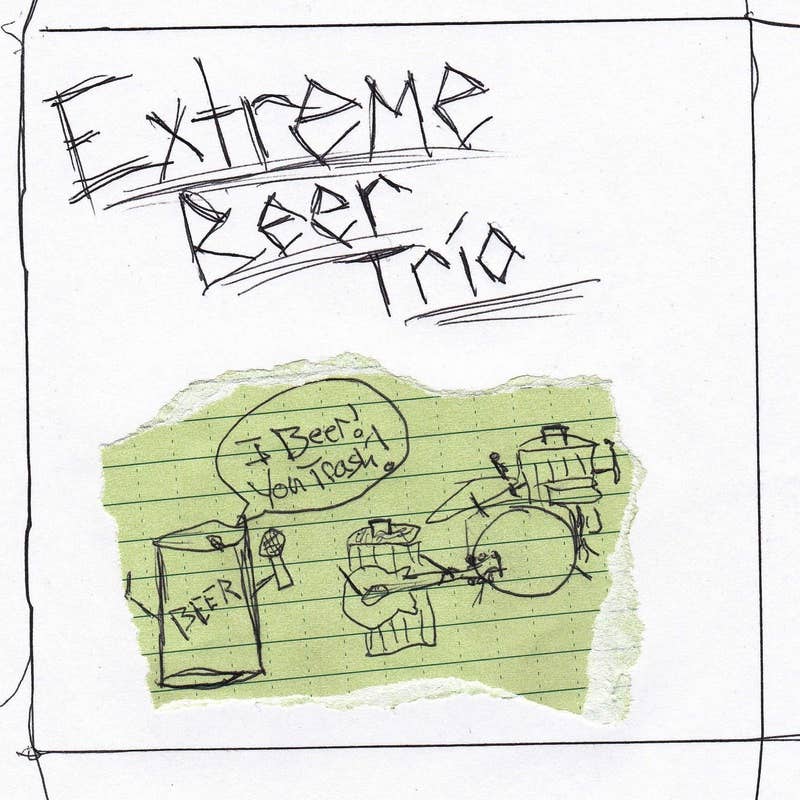 Extreme
Beer
Trio
I Beer!
You Trash.
BEER